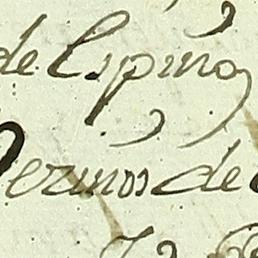 de Espino
Vezinos de